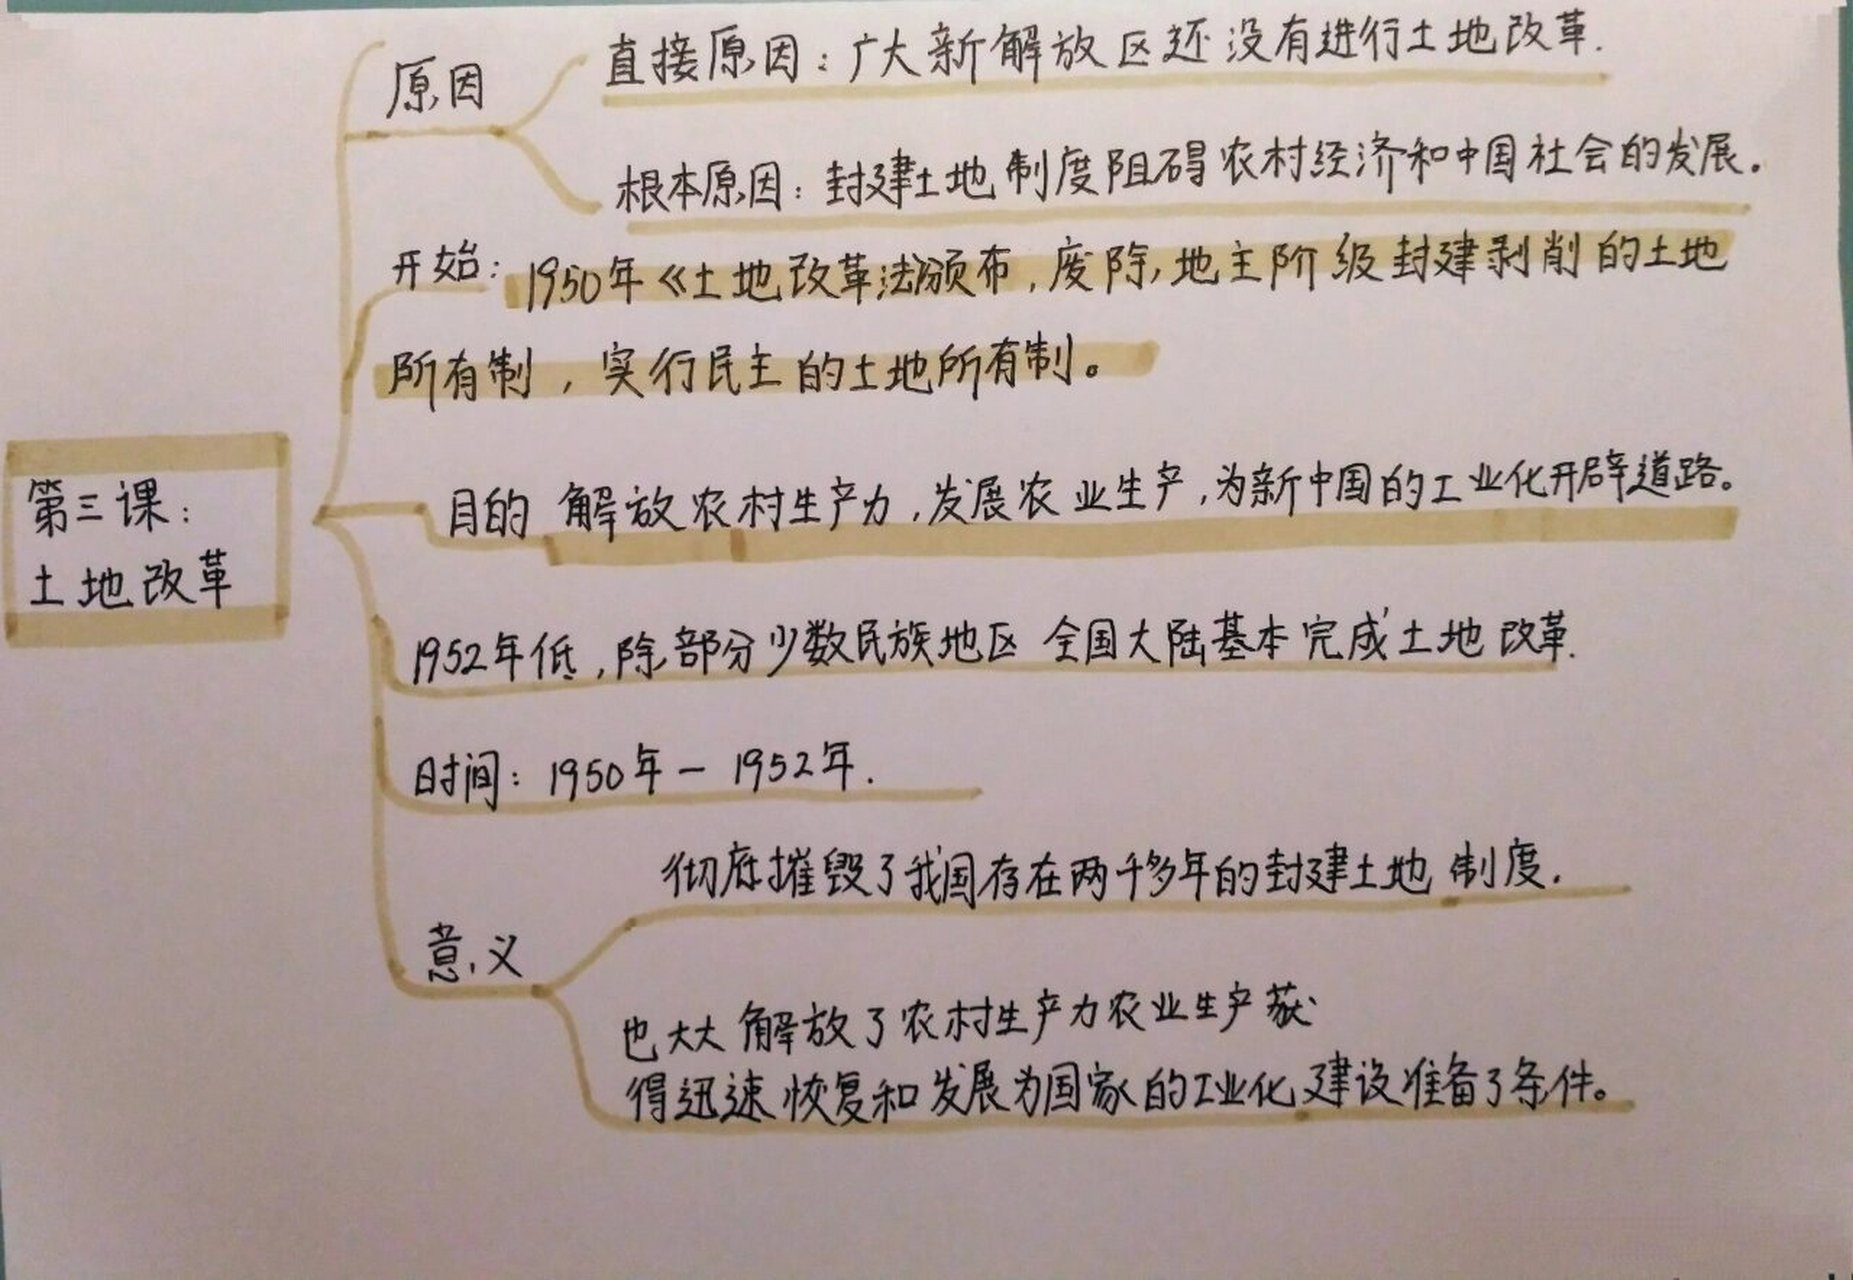 原因
直接原因：广大新解放区还没有进行土地改革.
根本原因：封建土地制度阻碍农村经济和中国社会的发展.
开始：1950年《土地改革法》颁布,废除,地主阶级封建剥削的土地
所有制,实行民主的土地所有制。
第三课：
土地改革
目的 解放农村生产力,发展农业生产,为新中国的工业化开辟道路。
1952年低,除部分少数民族地区 全国大陆基本完成土地改革.
时间：1950年－1952年.
意义
彻底摧毁了我国存在两千多年的封建土地制度.
也大大解放了农村生产力农业生产获
得迅速恢复和发展为国家的工业化建设准备了条件。